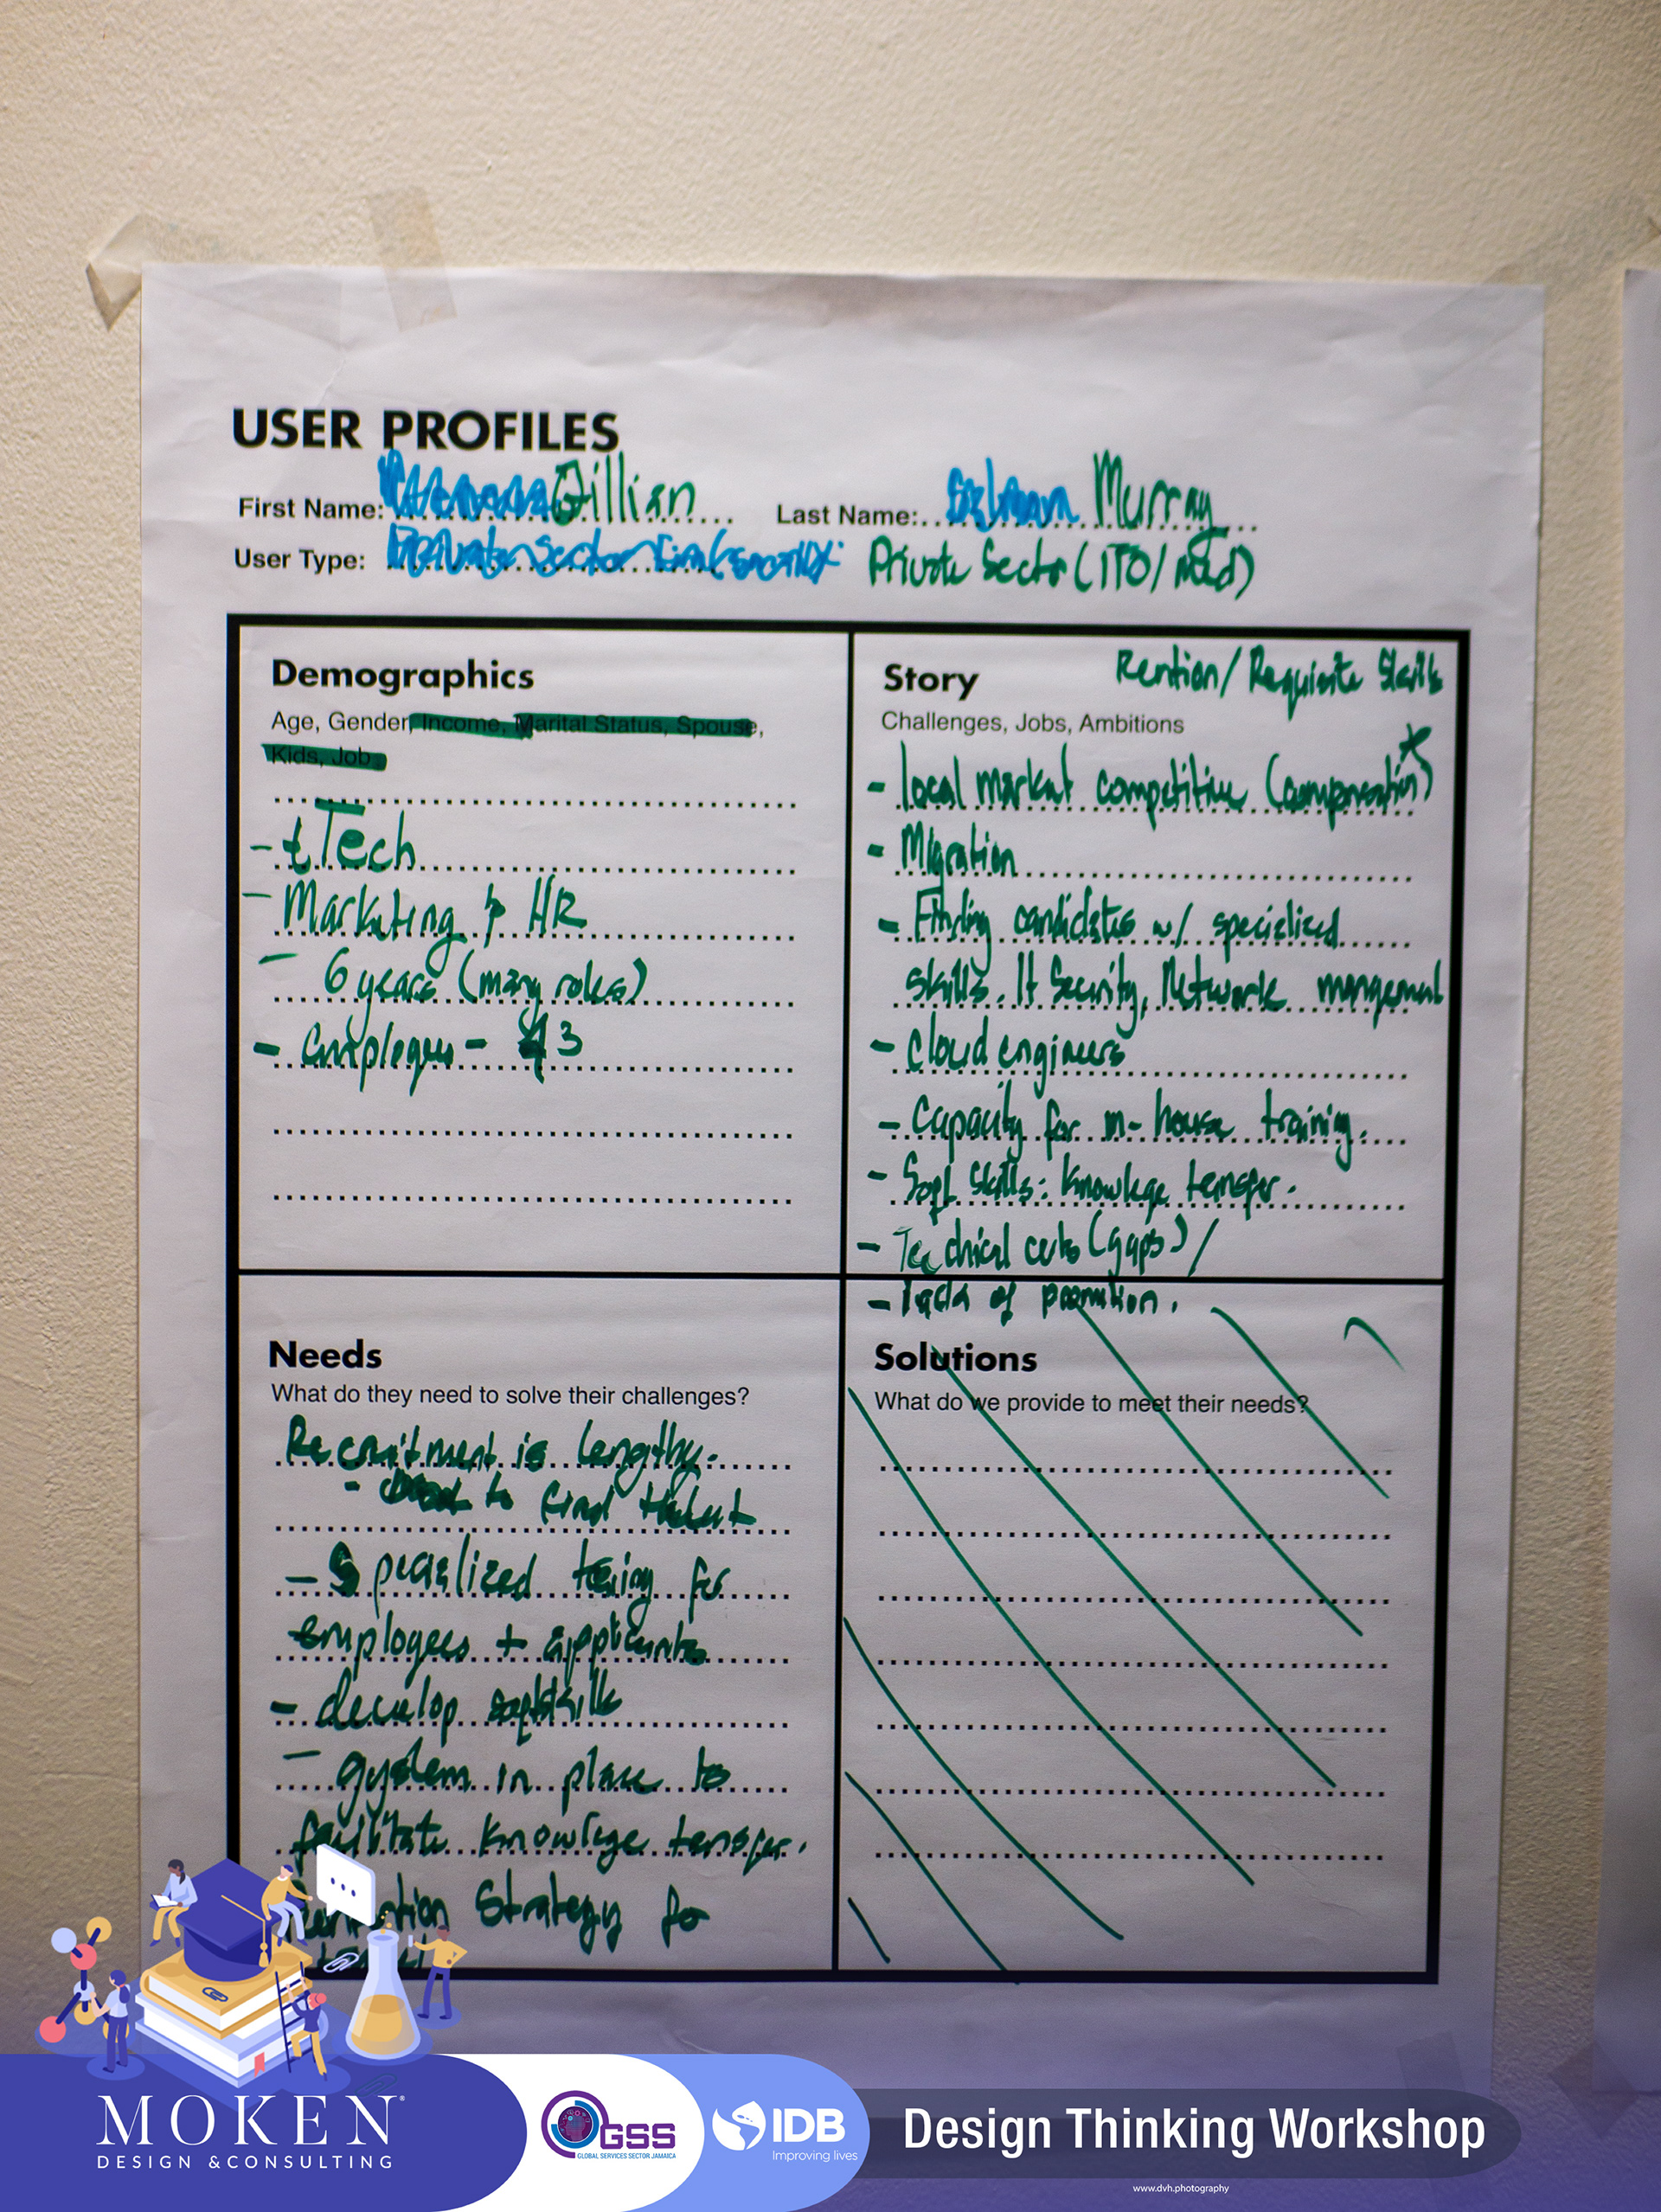 USER PROFILES
First Name: Gillian
Last Name: Murray
User Type: Private Sector (ITO/
Demographics
Age, Gender, Income, Marital Status, Spouse,
Kids, Job
- tTech
- Marketing & HR
- 6 years (many roles)
- Employees - 43
Story
Rention/Requisite Skills
Challenges, Jobs, Ambitions
- local market competitive
- Migration
- Finding candidates w/ specialized
skills. It Security, Network
- Cloud engineers
- Capacity for in-house training.
- Soft Skills: Knowlege
- Technical certs (gaps) /
- lack of
Needs
What do they need to solve their challenges?
Recruitment is lengthy.
- to find
- Specialized for
employees +
- develop softskills
- system in place to
facilitate Knowlege
Strategy for
Solutions
What do we provide to meet their needs?
MOKEN®
DESIGN &CONSULTING
GSS
GLOBAL SERVICES SECTOR JAMAICA
IDB
Improving lives
Design Thinking Workshop
www.dvh.photography